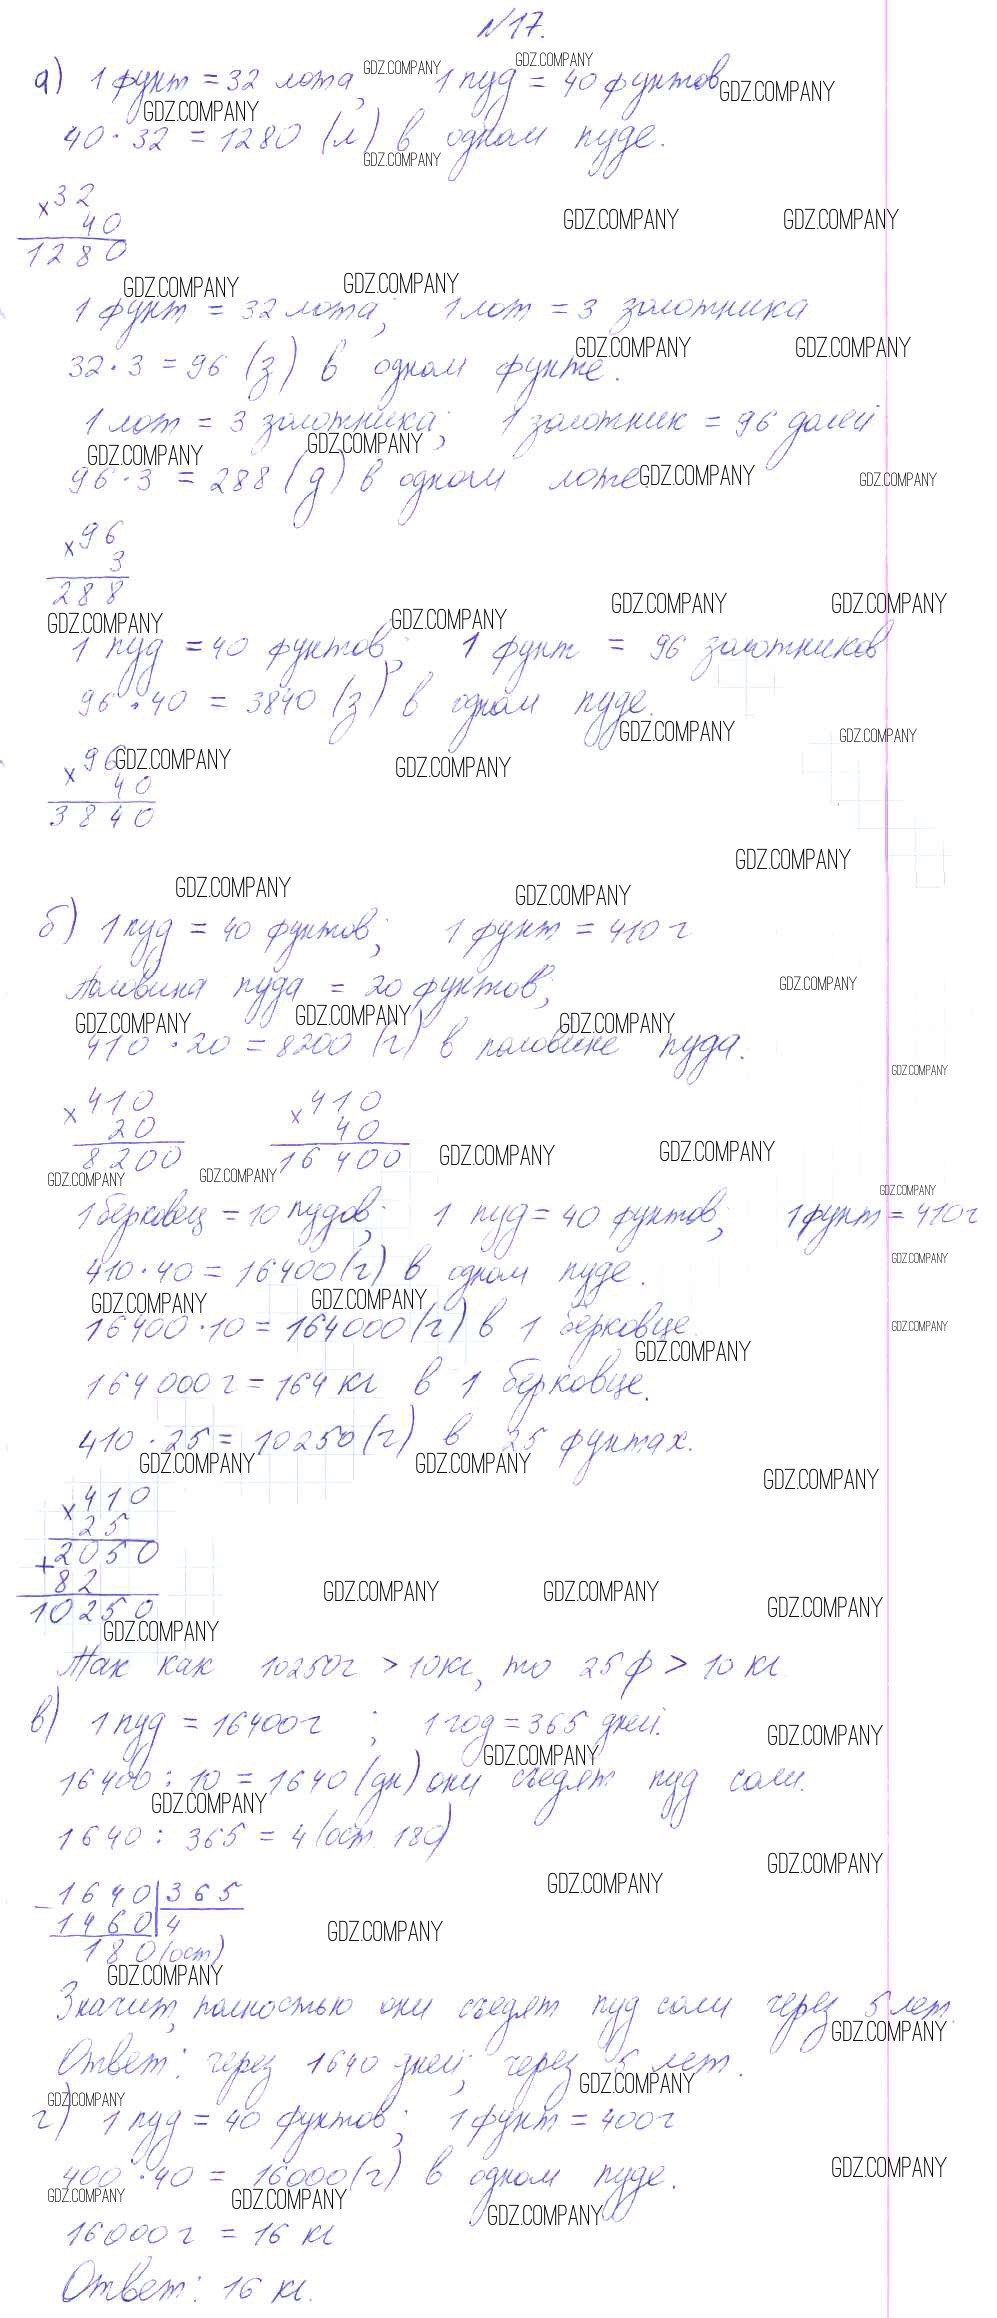 №17.
а) 1 фунт = 32 лота; 1 пуд = 40 фунтов
40 · 32 = 1280 (л) в одном пуде.
× 32
40
1280
1 фунт = 32 лота; 1 лот = 3 золотника
32 · 3 = 96 (з) в одном фунте.
1 лот = 3 золотника; 1 золотник = 96 долей
96 · 3 = 288 (д) в одном лоте.
× 96
3
288
1 пуд = 40 фунтов; 1 фунт = 96 золотников
96 · 40 = 3840 (з) в одном пуде.
× 96
40
3840
б) 1 пуд = 40 фунтов; 1 фунт = 410 г
Половина пуда = 20 фунтов;
410 · 20 = 8200 (г) в половине пуда.
× 410 × 410
20 40
8200 16400
1 берковец = 10 пудов; 1 пуд = 40 фунтов; 1 фунт = 410 г
410 · 40 = 16400 (г) в одном пуде.
16400 · 10 = 164000 (г) в 1 берковце.
164000 г = 164 кг в 1 берковце.
410 · 25 = 10250 (г) в 25 фунтах.
× 410
25
+ 2050
82
10250
Так как 10250 г > 10 кг, то 25 ф > 10 кг.
в) 1 пуд = 16400 г ; 1 год = 365 дней.
16400 : 10 = 1640 (дн) они съедят пуд соли.
1640 : 365 = 4 (ост. 180)
- 1640 | 365
1460 | 4
180 (ост)
Значит, полностью они съедят пуд соли через 5 лет.
Ответ: через 1640 дней; через 5 лет.
г) 1 пуд = 40 фунтов; 1 фунт = 400 г
400 · 40 = 16000 (г) в одном пуде.
16000 г = 16 кг
Ответ: 16 кг.
GDZ.COMPANY